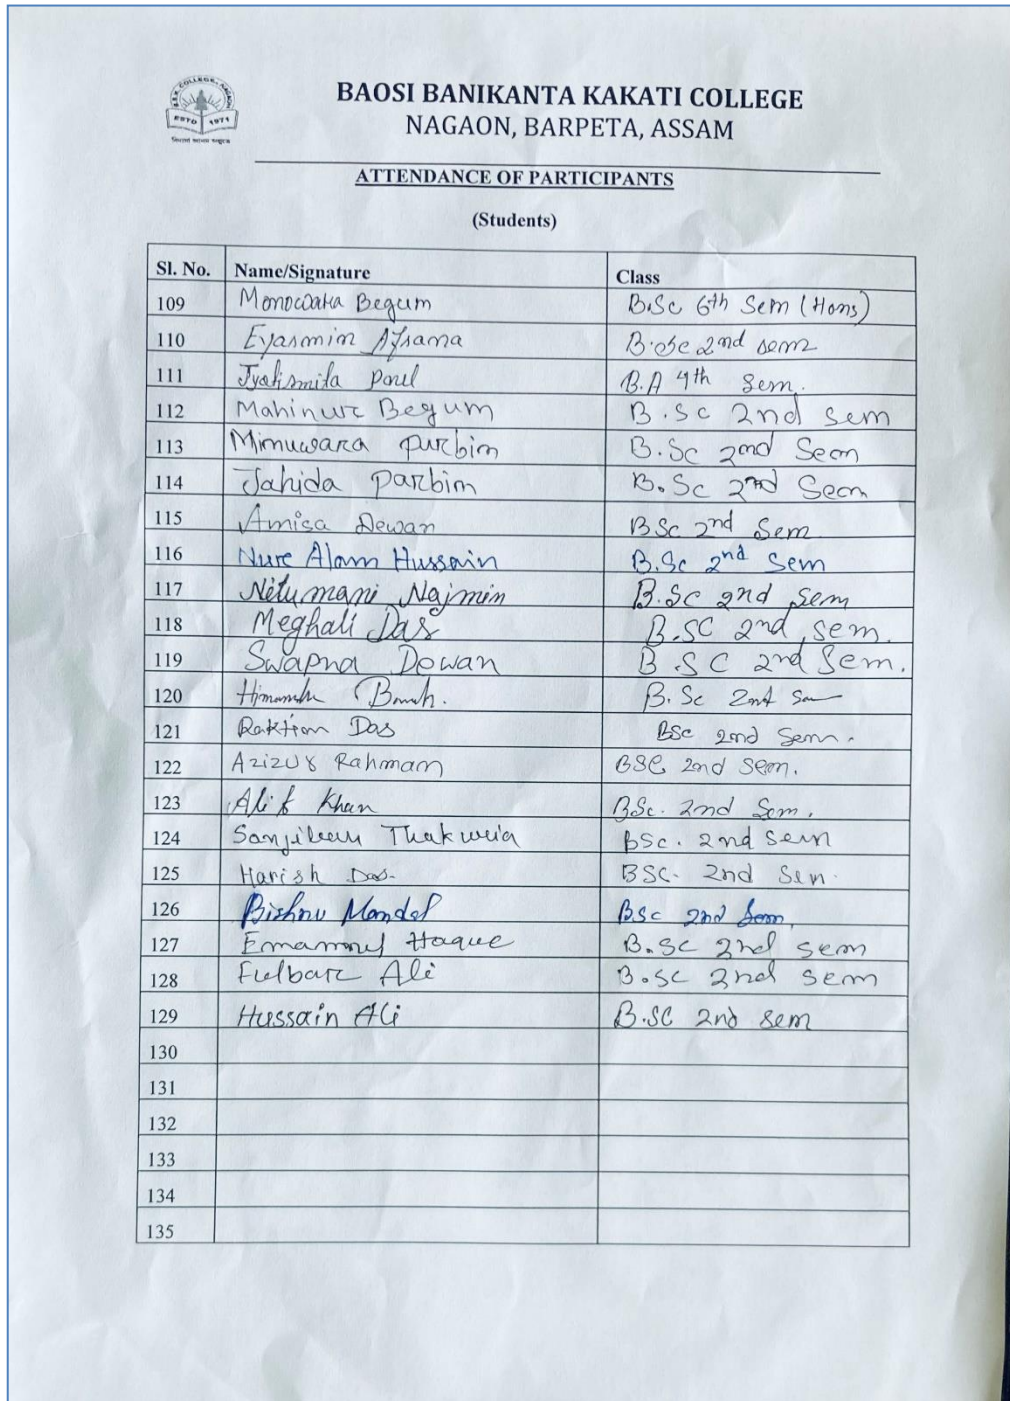 B.B.K. COLLEGE, NAGAON
ESTD 1971
BAOSI BANIKANTA KAKATI COLLEGE
NAGAON, BARPETA, ASSAM
ATTENDANCE OF PARTICIPANTS
(Students)
Sl. No. Name/Signature Class
109 Monowara Begum B.Sc 6th Sem (Hons)
110 Eyasmin Afsana B.Sc 2nd sem
111 Jyotismita B.A 4th Sem.
112 Mahinur Begum B.Sc 2nd sem
113 Mimuwara purbin B.Sc 2nd Sem
114 Jahida parbin B.Sc 2nd Sem
115 Amisa Dewan BSc 2nd Sem
116 Nur Alom Hussain B.Sc 2nd Sem
117 Nitumani Najmin B.Sc 2nd sem
118 Meghali Das B.SC 2nd sem.
119 Swapna Dowan B.SC 2nd Sem.
120 B.Sc 2nd
121 Raktim Das BSc 2nd Sem.
122 Azizur Rahman BSC 2nd Sem.
123 Alif Khan BSc. 2nd Sem.
124 Thakuria BSc. 2nd sem
125 Harish Das BSC. 2nd Sem.
126 Bishnu Mandal BSc 2nd Sem
127 Haque B.Sc 2nd sem
128 Fulbar Ali B.Sc 2nd sem
129 Hussain Ali B.SC 2nd sem
130
131
132
133
134
135